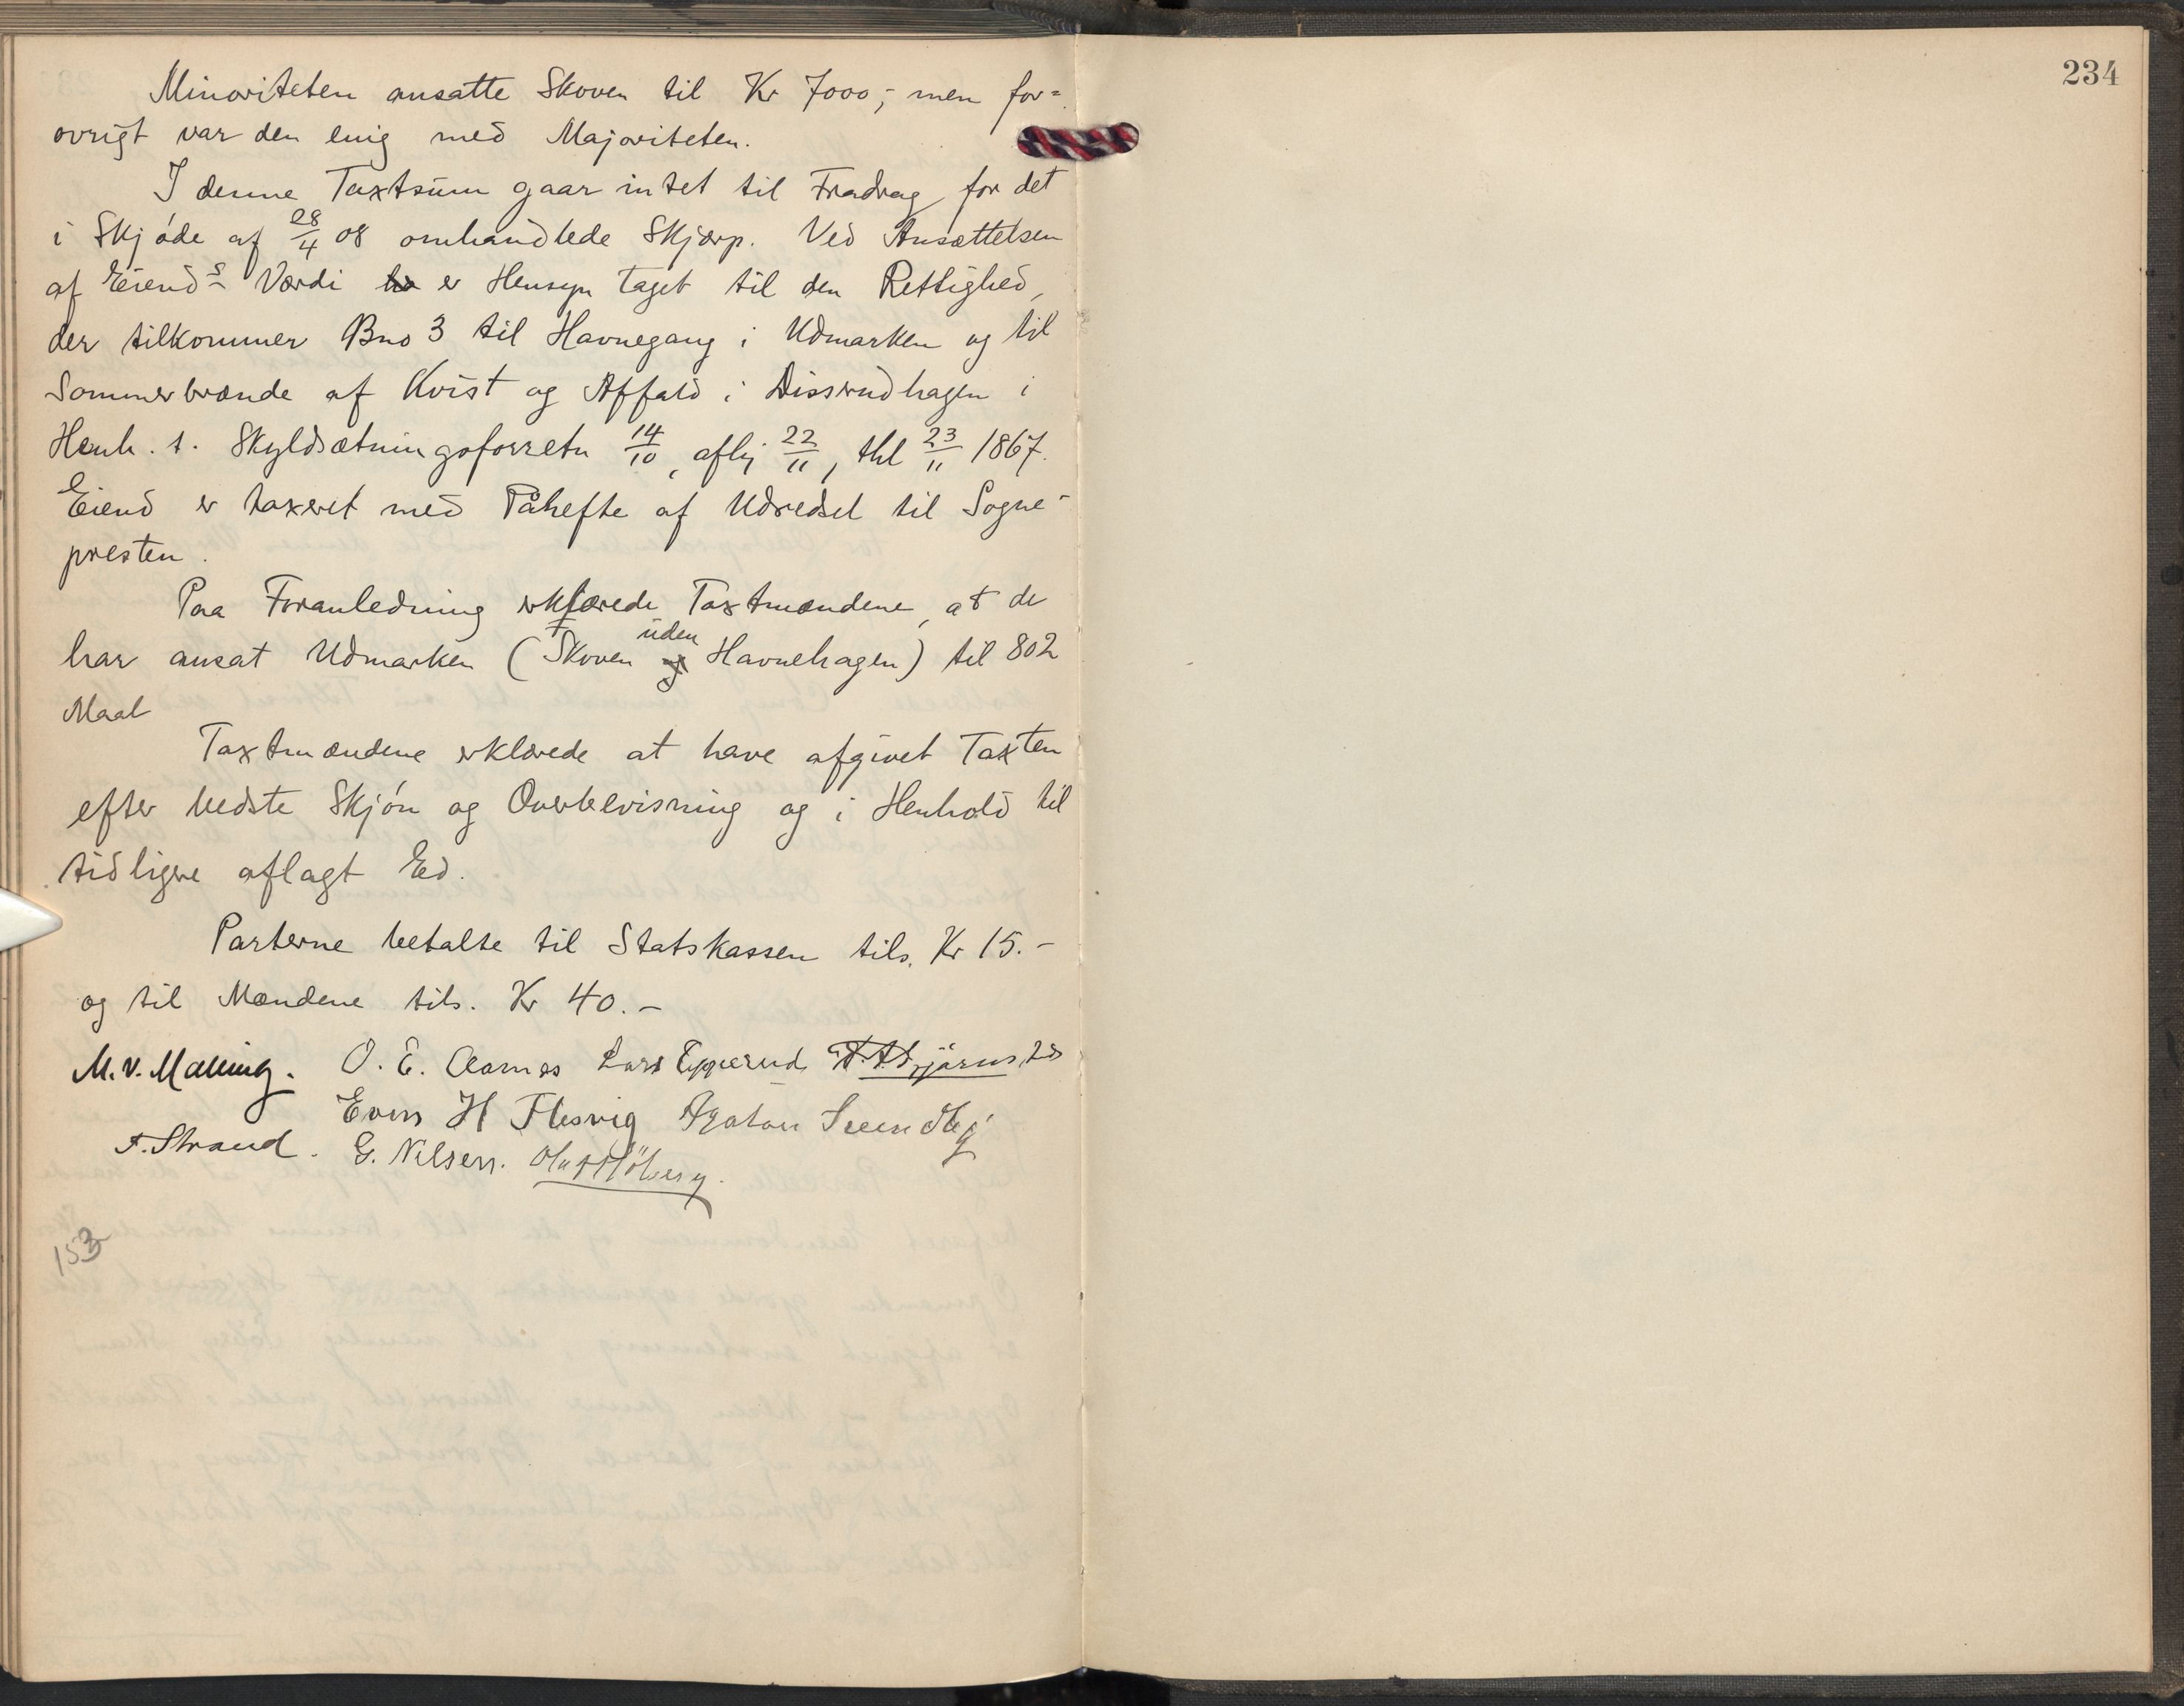 234
Minoriteten ansatte Skoven til Kr 7000,- men for=
øvrigt var den enig med Majoriteten.
I denne Taxtsum gaar intet til Fradrag for det
i Skjøde af 28/4 08 omhandlede Skjærp. Ved Ansættelsen
af Eiends Værdi er Hensyn taget til den Rettighed,
der tilkommer Bno 3 til Havnegang i Udmarken og til
Sommerbrænde af Kvist og Affald i Disserudhagen i
Henh. t. Skyldsætningsforretn 14/10, aflj 22/11, thl 23/11 1867.
Eiend er taxeret med Påhefte af Udredsel til Sogne-
presten.
Paa Foranledning erklærede Taxtmændene, at de
har ansat Udmarken (Skoven uden Havnehagen) til 802
Maal
Taxtmændene erklærede at have afgivet Taxten
efter bedste Skjøn og Overbevisning og i Henhold til
tidligere aflagt Ed.
Parterne betalte til Statskassen tils. Kr 15.-
og til Mændene tils. Kr 40.-
M. v. Malling. O. E. Aarnes Lars Epperud
Even H Flesvig
Strand. G. Nilsen.
153